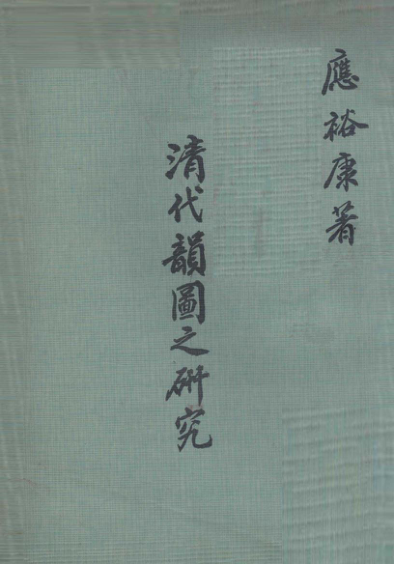 應裕康著
清代韻圖之研究